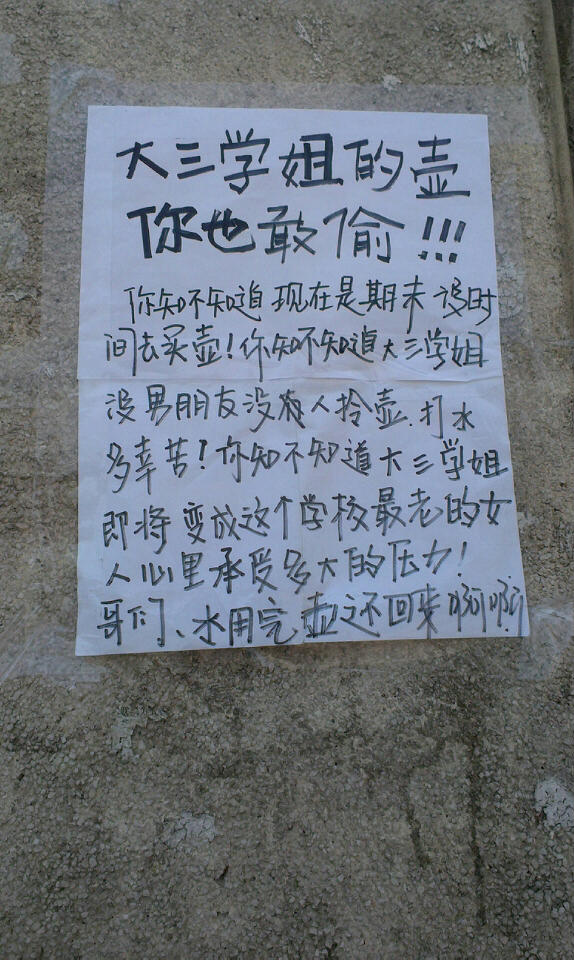 大三学姐的壶
你也敢偷!!!
你知不知道现在是期末没时
间去买壶!你知不知道大三学姐
没男朋友没有人拎壶.打水
多辛苦?你知不知道大三学姐
即将变成这个学校最老的女
人心里承受多大的压力!
哥们、水用完壶还回来啊啊